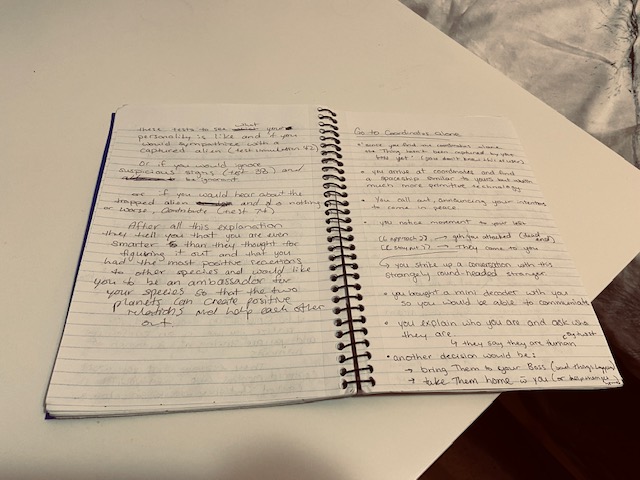 these tests to see what your
personality is like and if you
would sympathise with a
captured alien (test simulation 42)
Or if you would ignore
suspicious signs (test 86) and
be ignorant
or if you would hear about the
trapped alien and do nothing
or worse, contribute (test 74)
After all this explanation
they tell you that you are even
smarter than they thought for
figuring it out and that you
had the most positive reactions
to other species and would like
you to be an ambassador for
your species so that the two
planets can create positive
relations and help each other
out.
Go to Coordinates alone
• since you find the coordinates alone,
the Thing hasn't been captured by your
boss yet
• you arrive at coordinates and find
a spaceship similar to yours but with
much more primitive technology
• You call out, announcing your intention
to come in peace.
• you notice movement to your left
(approach) → get attacked (dead end)
→ They come to you
↳ you strike up a conversation with this
strangely round-headed stranger
• you bought a mini decoder with you
so you would be able to communicate
• you explain who you are and ask who
they are.
↳ they say they are human
• another decision would be:
→ bring Them to your Boss
→ take Them home you